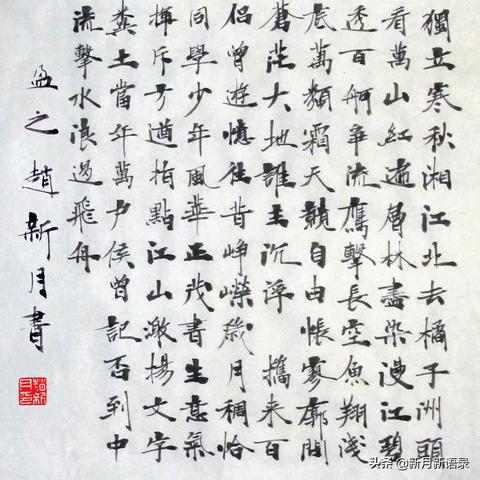 獨立寒秋湘江北去橘子洲頭
看萬山紅遍層林盡染漫江碧
透百舸爭流鷹擊長空魚翔淺
底萬類霜天競自由悵寥廓問
蒼茫大地誰主沉浮 攜來百
侶曾遊憶往昔崢嶸歲月稠恰
同學少年風華正茂書生意氣
揮斥方遒指點江山激揚文字
糞土當年萬戶侯曾記否到中
流擊水浪遏飛舟
盈之趙新月書
头条@新月新语录